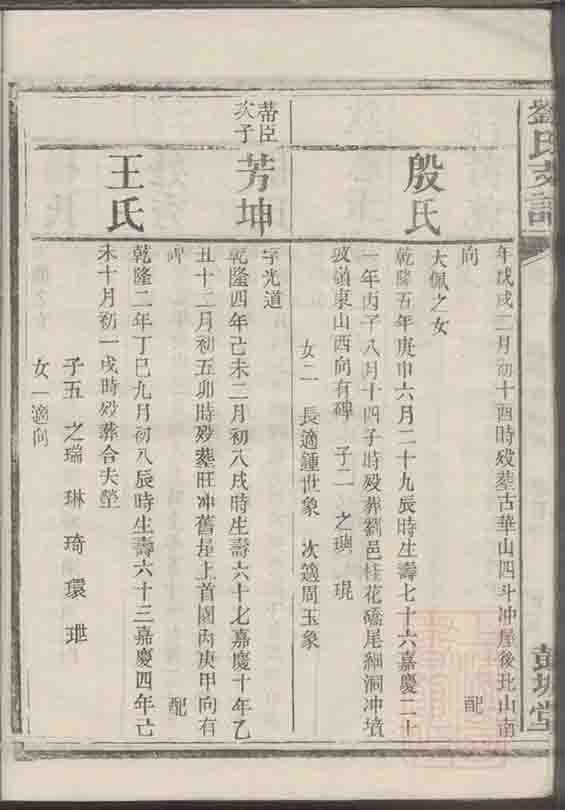 劉氏支譜
彭城堂
年戊戌二月初十酉時殁葬古華山四斗冲屋後北山南
向 配
殷氏
大佩之女
乾隆五年庚申六月二十九辰時生壽七十六嘉慶二十
一年丙子八月十四子時殁葬劉邑桂花礄尾細洞冲墳
坡嶺東山西向有碑 子二 之璵 琨
女二 長適鍾世象 次適周玉象
蒂臣
次子
芳坤
字光道
乾隆四年己未二月初八戌時生壽六十七嘉慶十年乙
丑十二月初五卯時殁葬旺冲舊屋上首園內庚甲向有
碑 配
王氏
乾隆二年丁巳九月初八辰時生壽六十三嘉慶四年己
未十月初一戌時殁葬合夫塋
子五 之瑞 琳 琦 環
女一適向